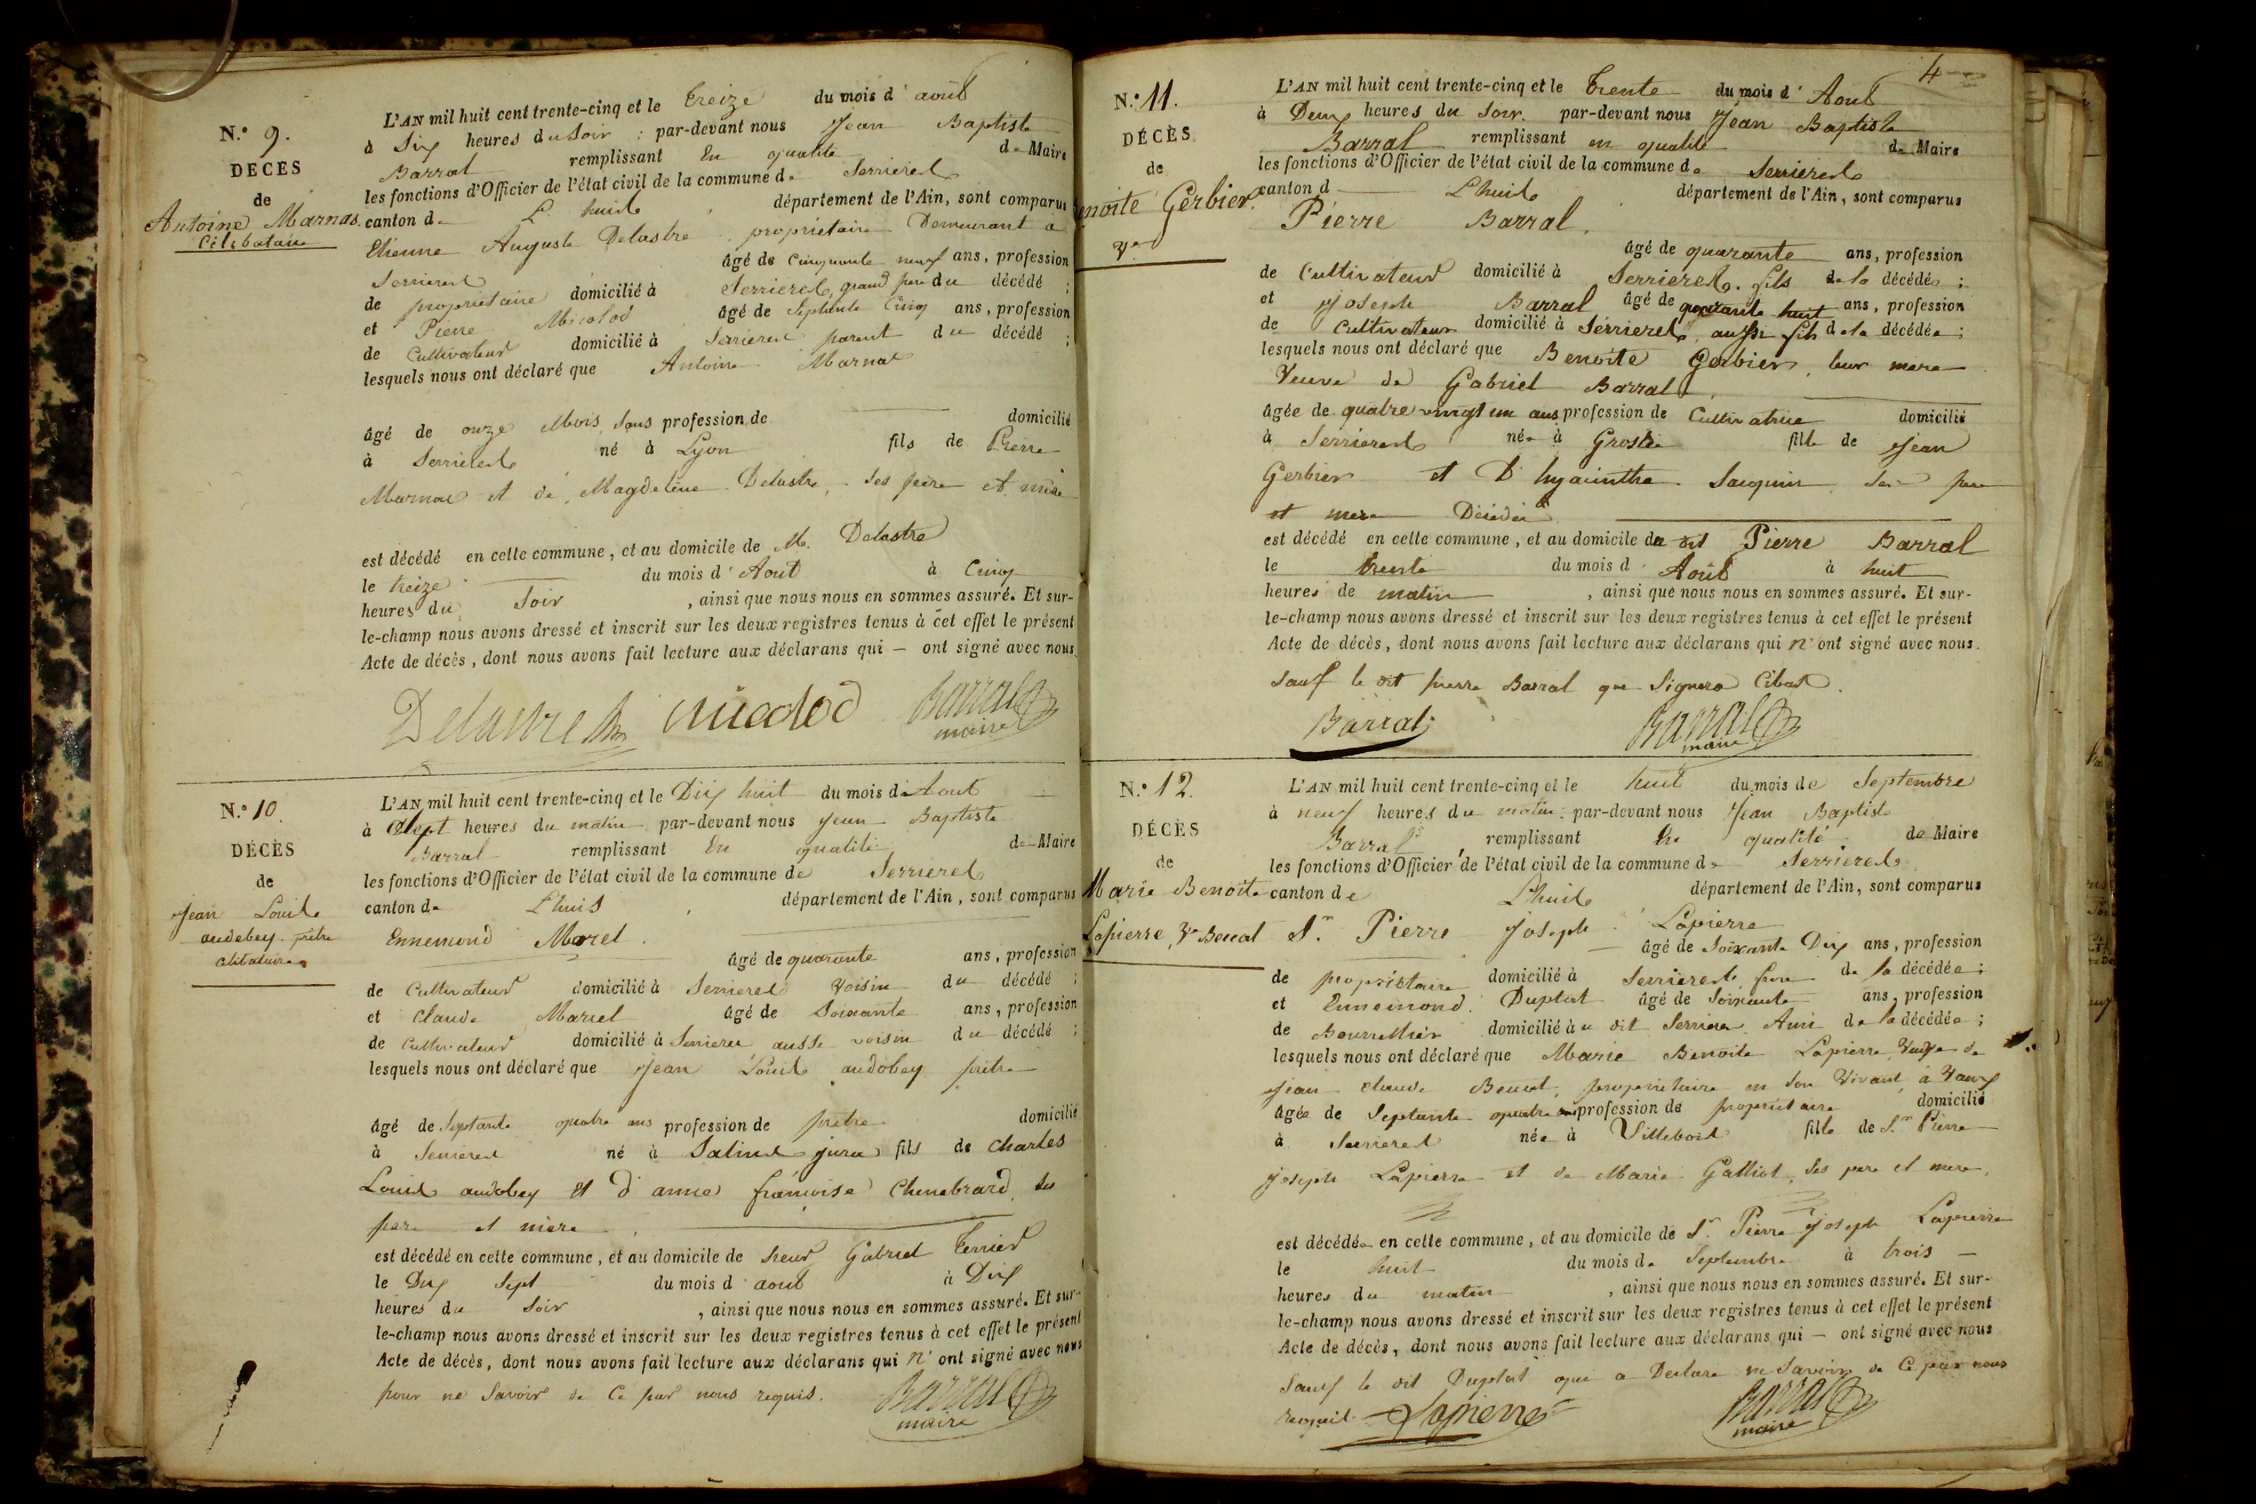 N.° 9.
DECES
de
Antoine Marnas
Célibataire
L'AN mil huit cent trente-cinq et le treize du mois d'août
à Six heures du Soir : par-devant nous Jean Baptiste
Barral remplissant En qualité de Maire
les fonctions d'Officier de l'état civil de la commune de Serrieres
canton de L'huis département de l'Ain, sont comparus
Etienne Auguste Delastre propriétaire Demeurant a
Serrieres âgé de Cinquante neuf ans, profession
de propriétaire domicilié à Serrieres, grand pere du décédé ;
et Pierre Micolod âgé de Septante Cinq ans, profession
de Cultivateur domicilié à Serrieres parent du décédé ;
lesquels nous ont déclaré que Antoine Marnas
âgé de onze Mois, Sans profession de domicilié
à Serrieres né à Lyon fils de Pierre
Marnas et de Magdeleine Delastre, Ses père et mère
est décédé en cette commune, et au domicile de M. Delastre
le treize du mois d'Août à Cinq
heures du Soir , ainsi que nous nous en sommes assuré. Et sur-
le-champ nous avons dressé et inscrit sur les deux registres tenus à cet effet le présent
Acte de décès, dont nous avons fait lecture aux déclarans qui — ont signé avec nous.
Delastre micolod Barral
maire
N.° 10.
DÉCÈS
de
Jean Louis
audobey prêtre
célibataire
L'AN mil huit cent trente-cinq et le Dix huit du mois d'Aout
à Sept heures du matin par-devant nous Jean Baptiste
Barral remplissant En qualité de Maire
les fonctions d'Officier de l'état civil de la commune de Serrieres
canton de L'huis département de l'Ain, sont comparus
Ennemond Marel
âgé de quarante ans, profession
de Cultivateur domicilié à Serrieres Voisin du décédé ;
et Claude Marcel âgé de Soixante ans, profession
de Cultivateur domicilié à Serrieres aussi voisin du décédé ;
lesquels nous ont déclaré que Jean Louis audobey prêtre
âgé de Septante quatre ans profession de prêtre domicilié
à Serrieres né à Salins jura fils de Charles
Louis audobey et d'anne françoise Chenebrard, Ses
pere et mere
est décédé en cette commune, et au domicile de Sieur Gabriel Terrier
le Dix Sept du mois d'aout à Dix
heures du Soir , ainsi que nous nous en sommes assuré. Et sur-
le-champ nous avons dressé et inscrit sur les deux registres tenus à cet effet le présent
Acte de décès, dont nous avons fait lecture aux déclarans qui n'ont signé avec nous
pour ne Savoir de Ce par nous requis. Barral
maire
4
N.° 11.
DÉCÈS
de
enoite Gerbier.
Ve
L'AN mil huit cent trente-cinq et le trente du mois d'Aout
à Deux heures du Soir. par-devant nous Jean Baptiste
Barral remplissant en qualité de Maire
les fonctions d'Officier de l'état civil de la commune de Serrieres
canton d L'huis département de l'Ain, sont comparus
Pierre Barral.
âgé de quarante ans, profession
de Cultivateur domicilié à Serrieres. fils de la décédée ;
et Joseph Barral âgé de quarante huit ans, profession
de Cultivateur domicilié à Serrieres, aussi fils de la décédée ;
lesquels nous ont déclaré que Benoite Gerbier, leur mere
Veuve de Gabriel Barral
âgée de quatre vingt un ans profession de Cultivatrice domicilié
à Serrieres née à Groslée fille de Jean
Gerbier et D'hyacinthe Jacquin Ses pere
et mere Décédés
est décédé en cette commune, et au domicile du dit Pierre Barral
le trente du mois d'Août à huit
heures de matin , ainsi que nous nous en sommes assuré. Et sur-
le-champ nous avons dressé et inscrit sur les deux registres tenus à cet effet le présent
Acte de décès, dont nous avons fait lecture aux déclarans qui n'ont signé avec nous.
Sauf le dit pierre Barral que Signera Cibas.
Barral Barral
maire
N.° 12.
DÉCÈS
de
Marie Benoite
Lapierre, Ve Benat
L'AN mil huit cent trente-cinq et le huit du mois de Septembre
à neuf heures du matin : par-devant nous Jean Baptiste
Barral, remplissant En qualité de Maire
les fonctions d'Officier de l'état civil de la commune de Serrieres
canton de L'huis département de l'Ain, sont comparus
Sr. Pierre Joseph Lapierre
âgé de Soixante Dix ans, profession
de propriétaire domicilié à Serrieres, frere de la décédée ;
et Ennemond Duplat âgé de Soixante ans, profession
de Bourrellier domicilié au dit Serrieres Ami de la décédée ;
lesquels nous ont déclaré que Marie Benoite Lapierre Veuve de
Jean Claude Benat, propriétaire en Son Vivant, à Vaux
âgée de Septante quatre ans profession de propriétaire domicilié
à Serrieres née à Villebois fille de Sr Pierre
Joseph Lapierre et de Marie Galliot, Ses pere et mere,
est décédée en cette commune, et au domicile de Sr. Pierre Joseph Lapierre
le huit du mois de Septembre à trois —
heures du matin , ainsi que nous nous en sommes assuré. Et sur-
le-champ nous avons dressé et inscrit sur les deux registres tenus à cet effet le présent
Acte de décès, dont nous avons fait lecture aux déclarans qui — ont signé avec nous
Sauf le dit Duplat que a Déclaré ne Savoir de Ce par nous
requis Lapierre Barral
maire